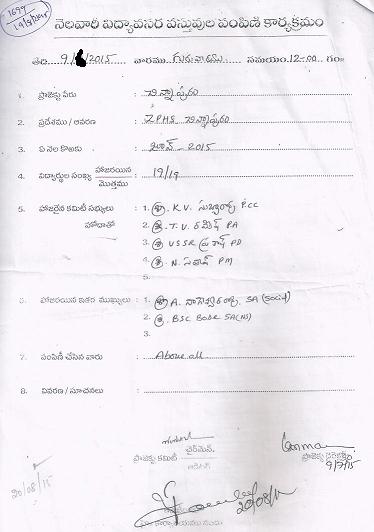 1699
19/8/2015
నెలవారి విద్యావసర వస్తువుల పంపిణి కార్యక్రమం
తేది 9/ /2015 వారము గురువారము సమయం 12-00 గం॥
1. ప్రాజెక్టు పేరు : చిన్నాపురం
2. ప్రదేశము / ఆవరణ : ZPHS చిన్నాపురం
3. ఏ నెల కొఱకు : జూన్ - 2015
4. విద్యార్థుల సంఖ్య హాజరయిన / మొత్తము : 19/19
5. హాజరైన కమిటీ సభ్యులు హోదాతో : 1. K.V. సుబ్బారావు P.CC
2. T.V. రమేష్ PA
3. VSSR ప్రకాష్ PD
4. N. PM
5.
6. హాజరయిన ఇతర ముఖ్యులు : 1. A. నాగేశ్వరరావు, SA (Social)
2. BSC Bose SA(NS)
3.
7. పంపిణీ చేసిన వారు : Above all
8. వివరణ / సూచనలు :
ప్రాజెక్టు కమిటీ ఛైర్మెన్,
ప్రాజెక్టు డైరెక్టర్
9/7/15
20/08/15
20/08/15